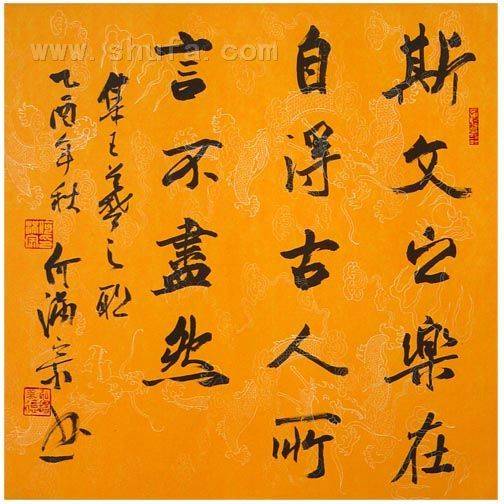 www.shufa.com
斯文之樂在
自得古人所
言不盡然
集王羲之聯
乙酉年秋 何滿宗书